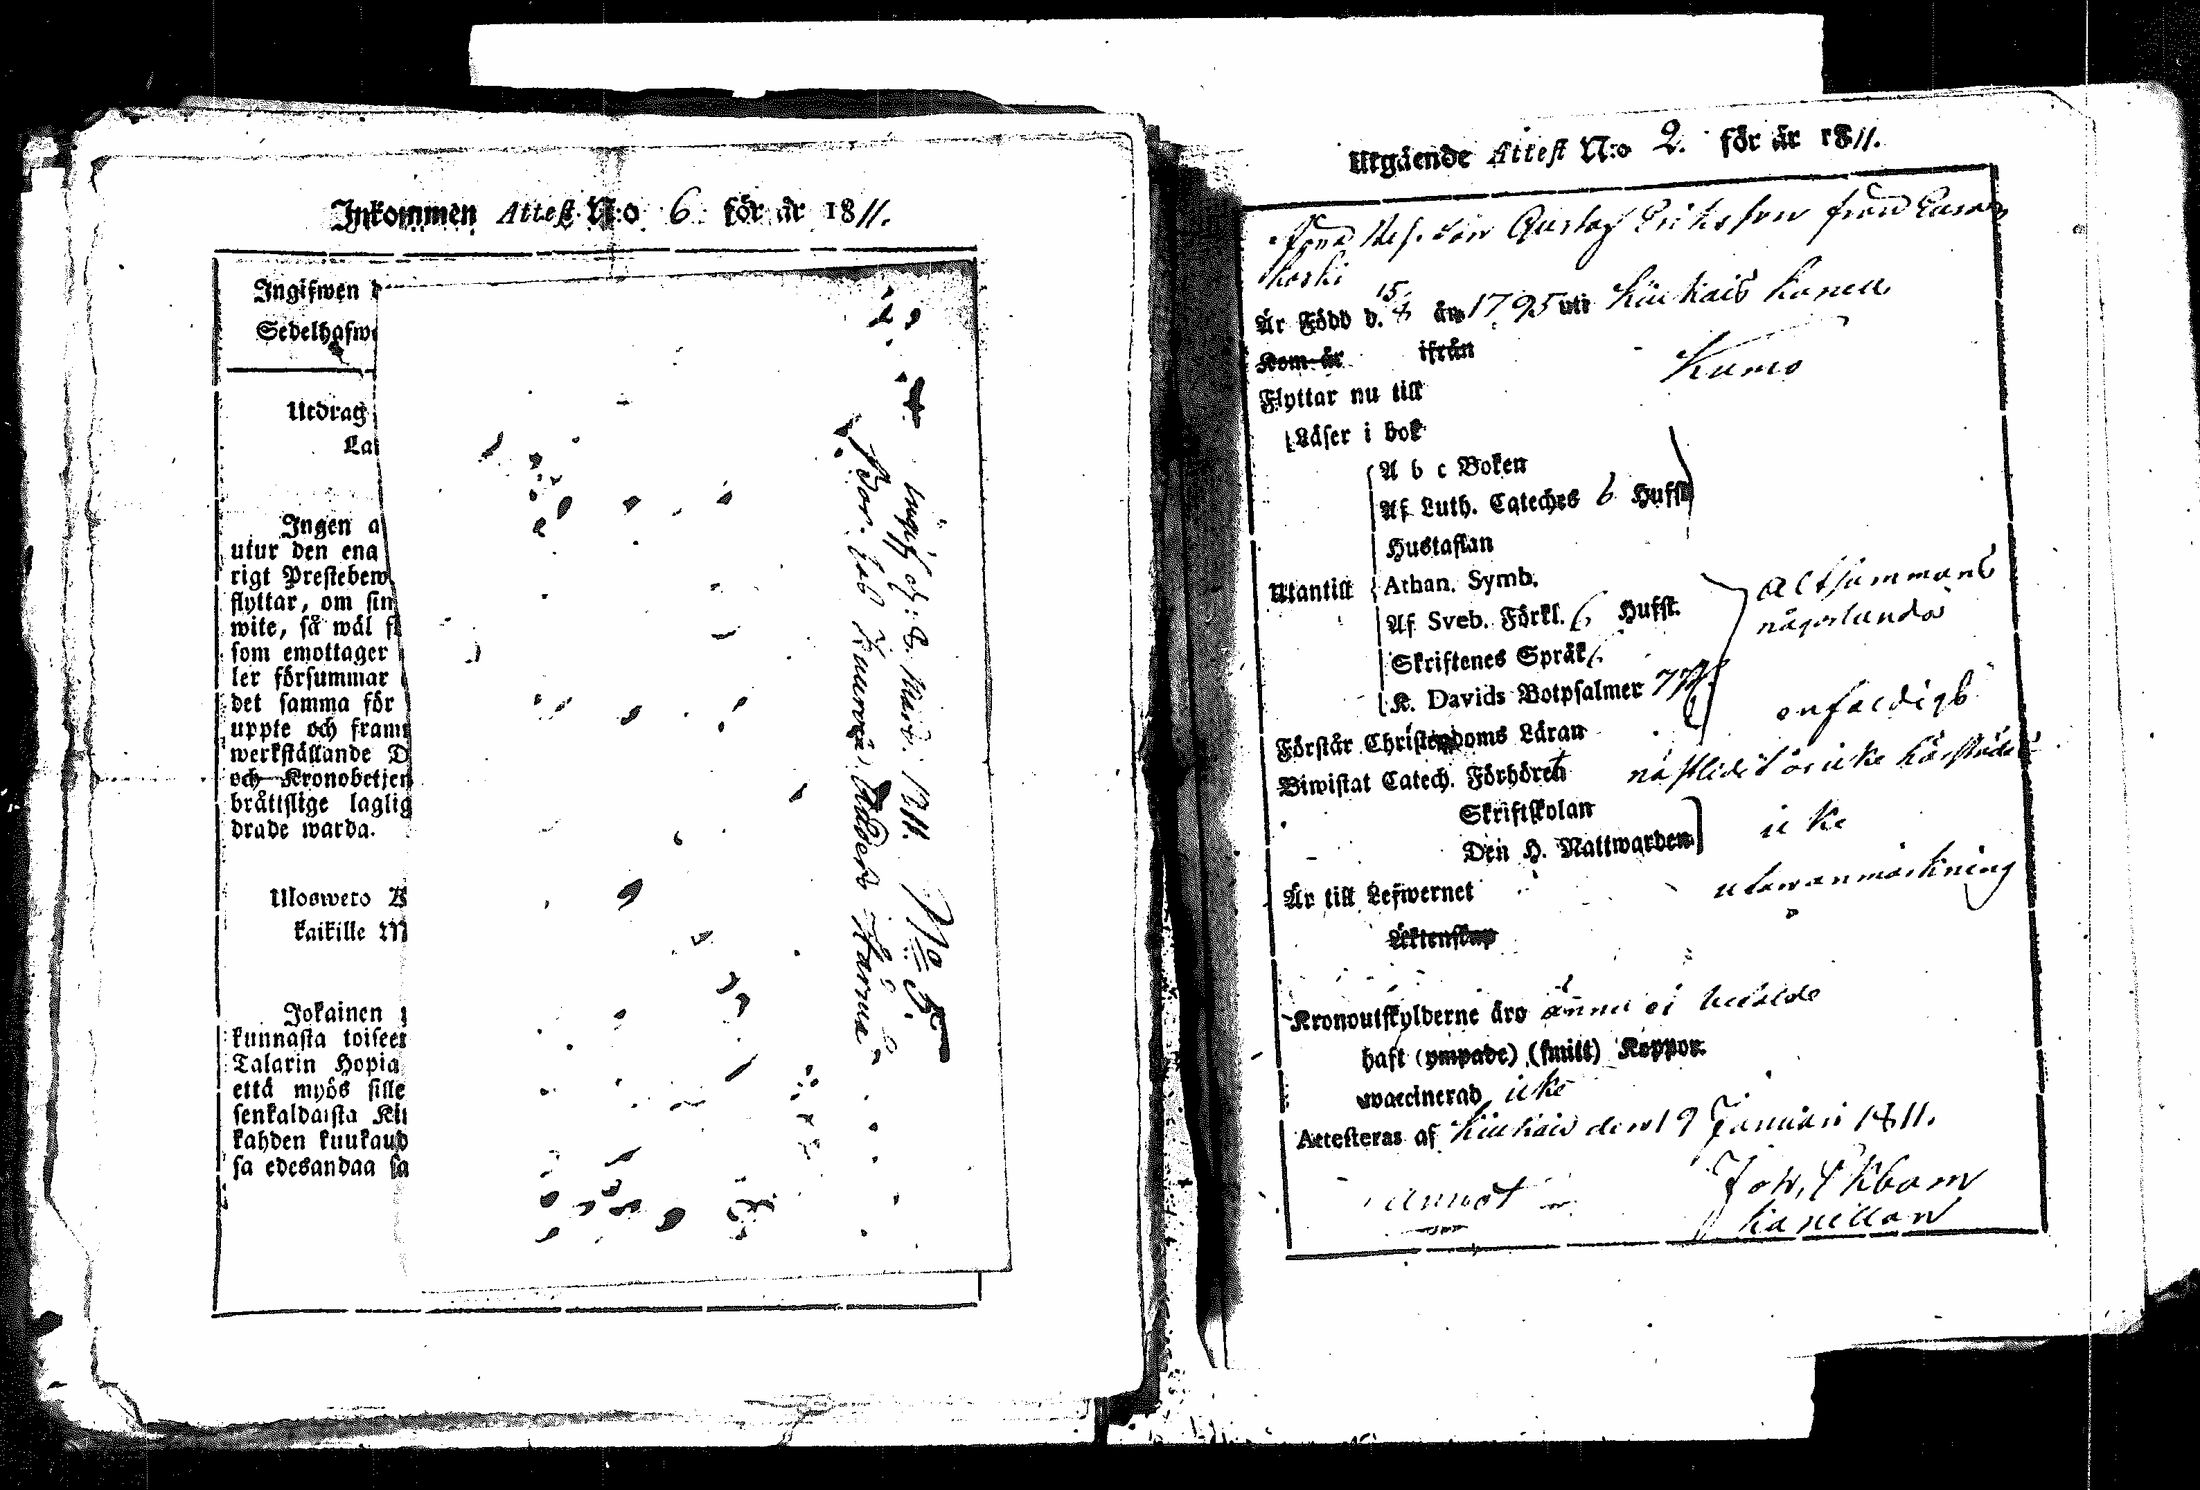 Inkommen Attest N:o 6 för år 1811.
Ingifwen d
Sedelhafwa
Utdrag
La
Ingen a
utur den ena
rigt Prestebew
flyttar, om sin
wite, så wäl f
som emottager
ler försummar
det samma för
uppte och fram
werkställande D
och Kronobetjen
bråttslige laglig
drade warda.
Uloswero K
kaikille M
Jokainen
kunnasta toiseen
Talarin Hopia
että myös sille
senkaldaista Kir
kahden kuukaud
sa edesandaa sa
ingif. d: 8 Mars. 1811. No 5.
Utgående Attest N:o 2. för år 1811.
Gustaf Eriksson från
koski
Är Född d. 15/8 år 1795 uti Kiukais Kapell
Kom år ifrån
Flyttar nu till Kumo
Läser i bok
A b c Boken
Af Luth. Cateches 6 Hufst.
Hustaflan
Utantill Athan. Symb. altsammans
Af Sveb. Förkl. 6 Hufst. någorlunda
Skriftenes Språk
K. Davids Botpsalmer 7
Förstår Christendoms Läran enfaldigt
Biwistat Catech. Förhöret nästledit år icke härstädes
Skriftskolan
Den H. Nattwarden icke
Är till Lefwernet utan anmärkning
Äktenskap
Kronoutskylderne äro ännu ej betalde
haft (ympade) (smitt) Koppor.
waccinerad icke
Attesteras af Kiukais den 19 Januari 1811.
Joh. Ekbom
Kapellan